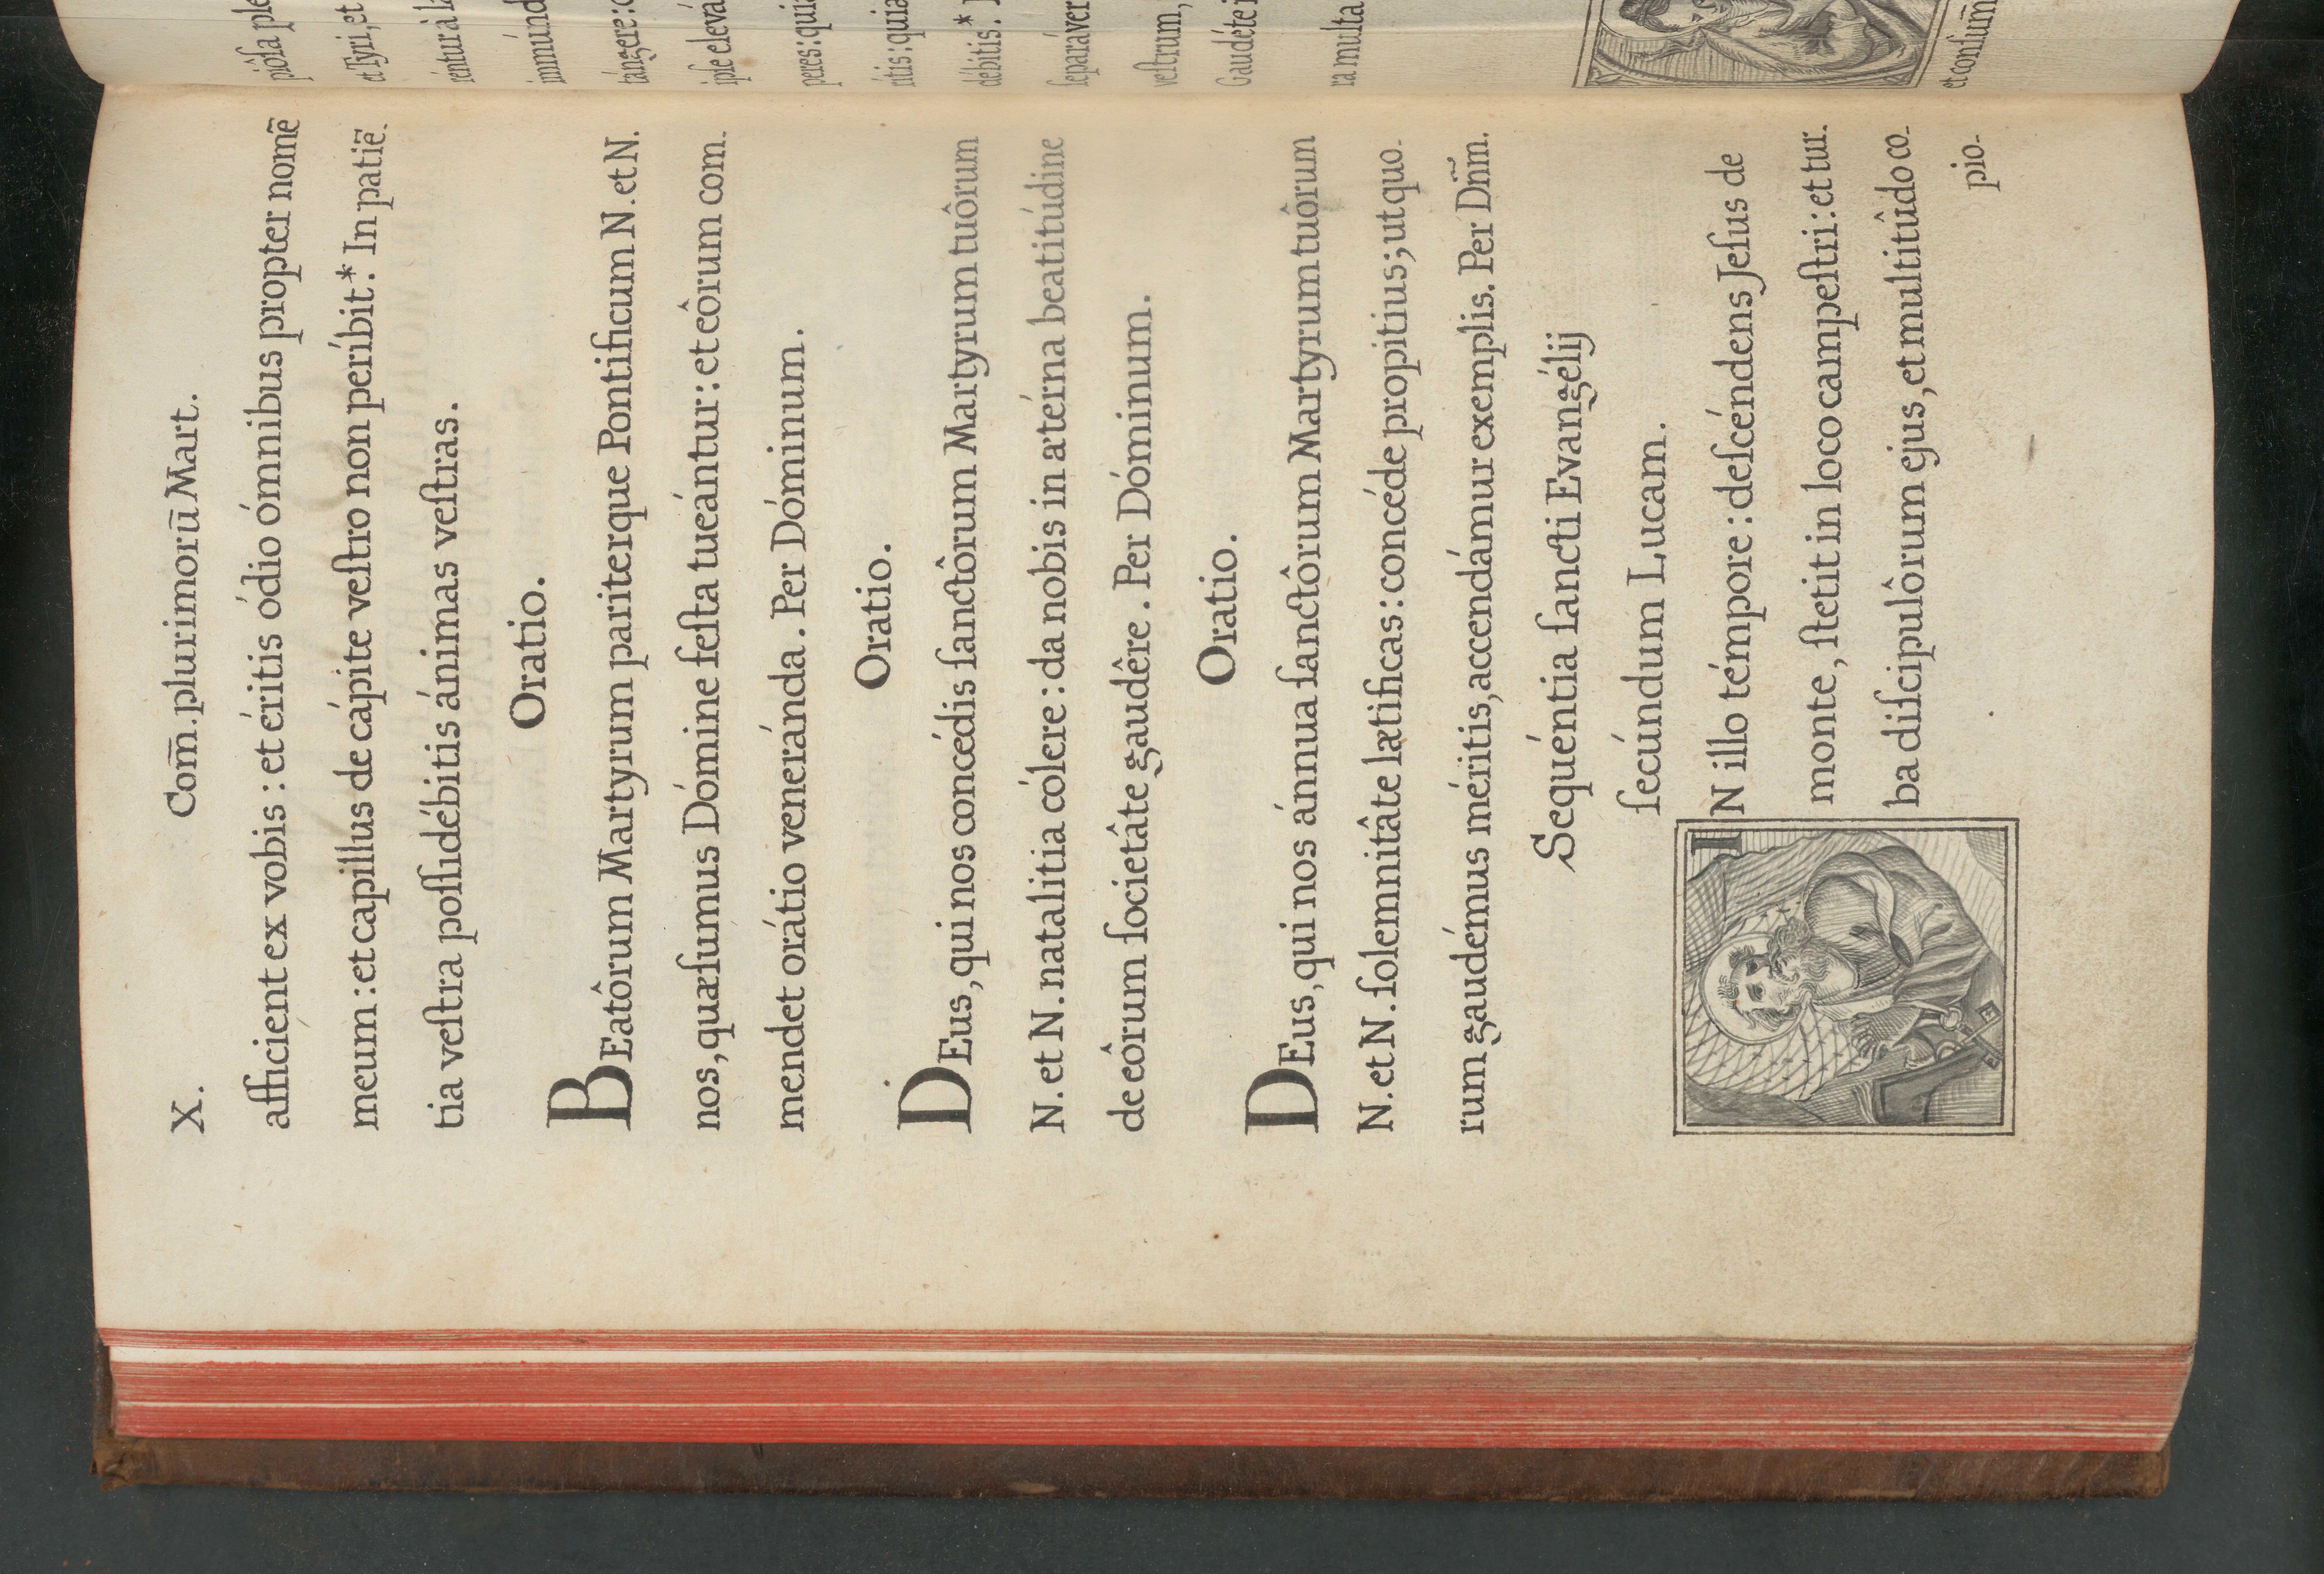 X. Com̄. plurimorū Mart.
afficient ex vobis : et éritis ódio ómnibus propter nomē
meum : et capillus de cápite veſtro non períbit.* In patiē-
tia veſtra poſſidébitis ánimas veſtras.
Oratio.
BEatôrum Martyrum pariterque Pontificum N. et N.
nos, quæſumus Dómine feſta tueántur : et eôrum com-
mendet orátio veneránda. Per Dóminum.
Oratio.
DEus, qui nos concédis ſanctôrum Martyrum tuôrum
N. et N. natalitia cólere : da nobis in ætérna beatitúdine
de eôrum ſocietâte gaudêre. Per Dóminum.
Oratio.
DEus, qui nos ánnua ſanctôrum Martyrum tuôrum
N. et N. ſolemnitâte lætificas : concéde propitius; ut quo-
rum gaudémus méritis, accendámur exemplis. Per Dn̄m.
Sequéntia ſancti Evangélij
ſecúndum Lucam.
IN illo témpore : deſcéndens Jeſus de
monte, ſtetit in loco campeſtri : et tur-
ba diſcipulôrum ejus, et multitûdo co-
pio-
pióſa ple
et Tyri, et
réntur à la
immúnd
tángere : 
ipſe elevá
peres : quia
ritis : quia
débitis.*
ſeparáver
veſtrum,
Gaudéte i
ra multa
et conſum̄